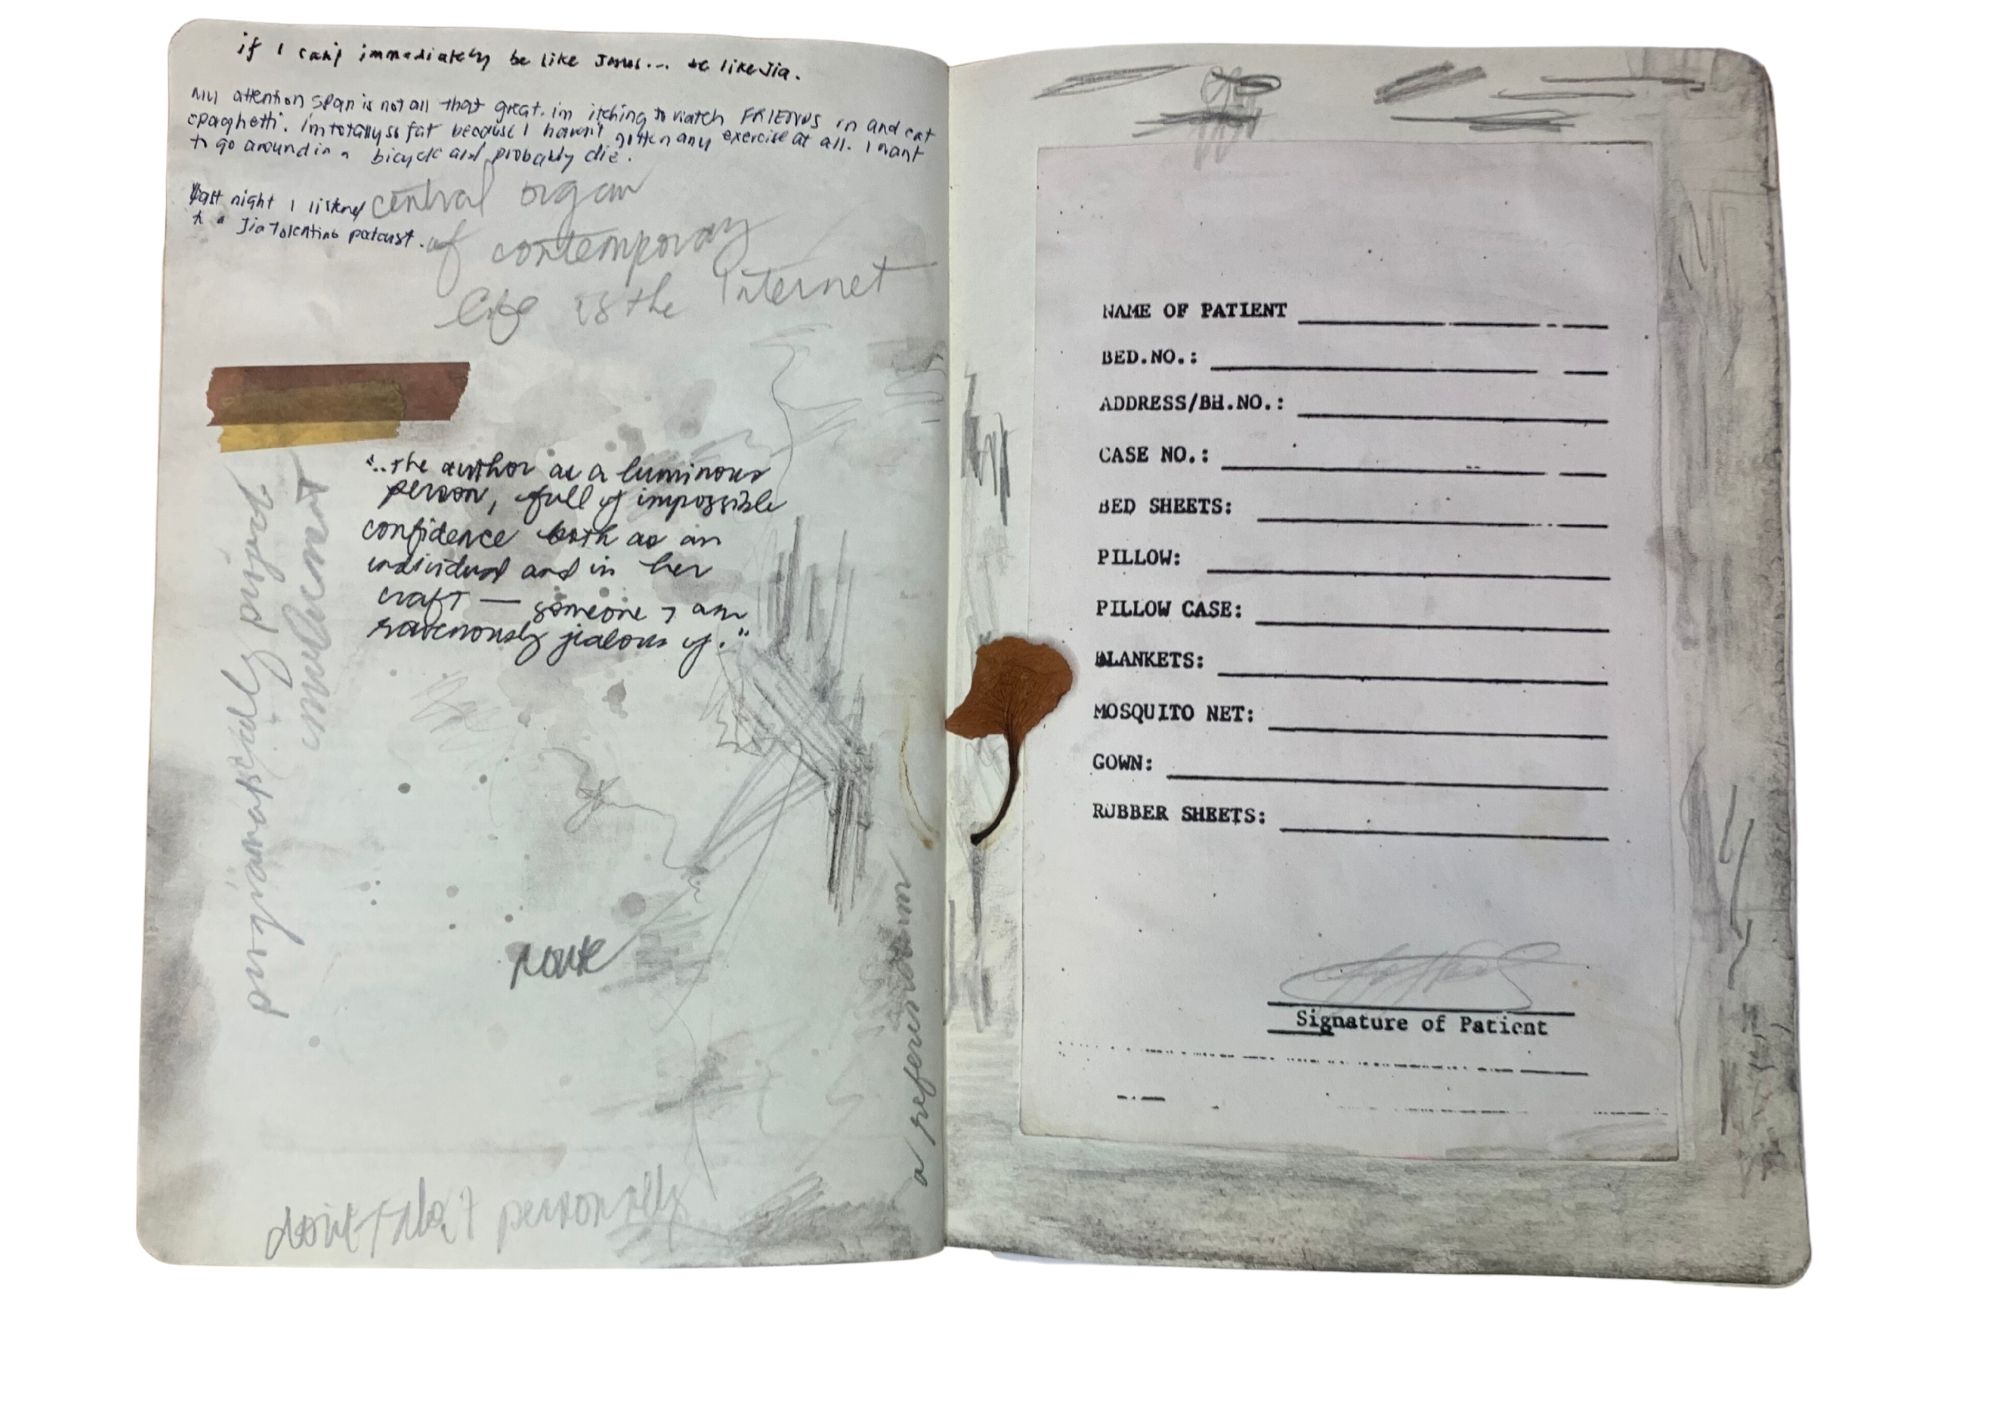 if I can't immediately be like Jesus... be like Jia.
My attention span is not all that great. im itching to watch FRIENDS in and eat
spaghetti. Im totally so fat because I haven't gotten any exercise at all. I want
to go around in a bicycle and probably die.
Last night I listened
to a Jia Tolentino podcast.
central organ
of contemporary
life is the Internet
"..the author as a luminous
person, full of impossible
confidence both as an
individual and in her
craft — someone I am
ravenously jealous of."
a referendum
personally
NAME OF PATIENT
BED.NO.:
ADDRESS/BH.NO.:
CASE NO.:
BED SHEETS:
PILLOW:
PILLOW CASE:
BLANKETS:
MOSQUITO NET:
GOWN:
RUBBER SHEETS:
Signature of Patient